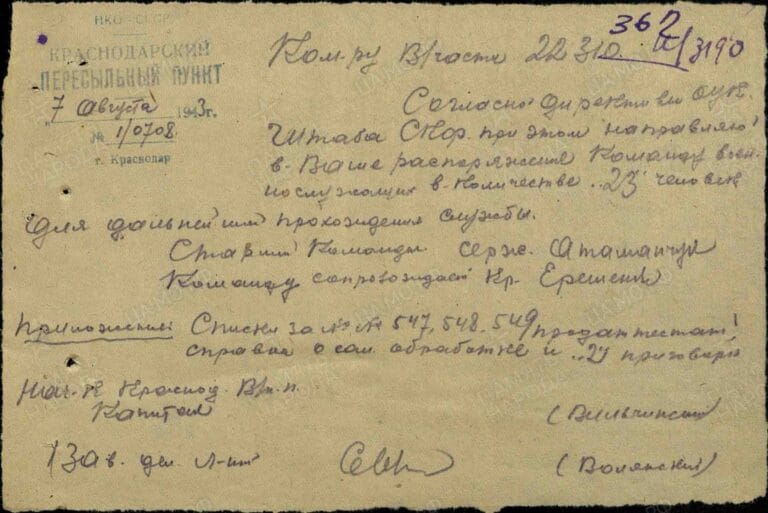 НКО-СССР
КРАСНОДАРСКИЙ
ПЕРЕСЫЛЬНЫЙ ПУНКТ
7 августа 1943г.
№ 1/0708
г. Краснодар
362
Ком-ру В/части 22310 3190
Согласно директивы ОУК
Штаба СКФ при этом направляю
в Ваше распоряжение Команду воен.
нослужащих в количестве 23 человек
для дальнейшего прохождения службы.
Старший Команды серж. Атаманчук
Команду сопровождает Кр. Ерешенко
Приложение: Списки за №№ 547, 548, 549, продаттестат,
справка о сан. обработке и приговоры
Нач-к Краснод. В/п.п.
Капитан (Вильчинский)
Зав. дел. Л-нт (Волянский)